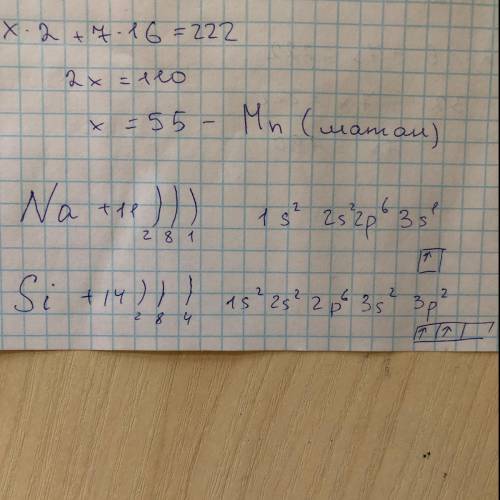 x · 2 + 7 · 16 = 222
2x = 110
x = 55 - Mn (матан)
Na +11 ) ) ) 1s² 2s² 2p⁶ 3s¹
2 8 1
↑
Si +14 ) ) ) 1s² 2s² 2p⁶ 3s² 3p²
2 8 4
↑ ↑